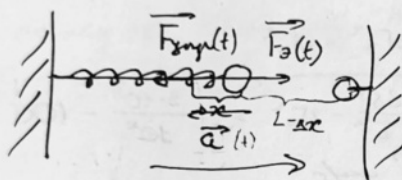 F упр(t) F э(t)
Δx L-Δx
a (t)